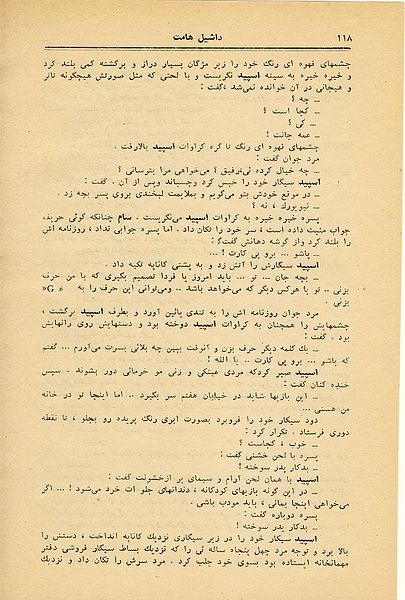 ۱۱۸
داشیل هامت
چشمهای قهوه ای رنگ خود را زیر مژگان بسیار دراز و برگشته کمی بلند کرد
و خیره خیره به سینه اسپید نگریست و با لحنی که مثل صورتش هیچگونه تاثر
و هیجانی در آن خوانده نمی‌شد ، گفت :
ــ چه ؟
ــ کجا است ؟
ــ کی ؟
ــ عمه جانت !
چشمهای قهوه ای رنگ تا گره کراوات اسپید بالا رفت .
مرد جوان گفت :
ــ چه خیال کرده ئی ، رفیق ؟ می‌خواهی مرا بترسانی ؟
اسپید سیگار خود را خیس کرد و چسباند و پس از آن . گفت :
ــ در موقع خودش بتو می‌گویم و بملایمت لبخندی بروی پسر بچه زد .
ــ نیویورك ، نه ؟
پسره خیره خیره به کراوات اسپید می‌نگریست . سام چنانکه گوئی حریف
جواب مثبت داده است ، سر خود را تکان داد . اما پسره جوابی نداد ، روزنامه اش
را بلند کرد و از گوشه دهانش گفت :
ــ پاشو ... برو پی کارت ! ...
اسپید سیگارش را آتش زد و به پشتی کاناپه تکیه داد .
ــ بچه جان ... تو ... باید امروز یا فردا تصمیم بگیری که با من حرف
بزنی .. تو یا هر کس دیگر که می‌خواهد باشد .. و می‌توانی این حرف را به « G »
بزنی .
مرد جوان روزنامه اش را به تندی پائین آورد و بطرف اسپید برگشت ،
چشمهایش را همچنان به کراوات اسپید دوخته بود و دستهایش روی رانهایش
بود . گفت :
ــ یك کلمه دیگر حرف بزن و آنوقت ببین چه بلائی بسرت می‌آورم ... گفتم
که پاشو ... برو پی کارت .. یا الله !
اسپید صبر کرد که مردی عینکی و زنی مو خرمائی دور بشوند . سپس
خنده کنان گفت :
ــ این بازیها شاید در خیابان هفتم سر بگیرد .. اما اینجا تو در خانه
من هستی ...
دود سیگار خود را فرو برد بصورت ابری رنگ پریده رو بجلو ، تا نقطه
دوری فرستاد . تکرار کرد :
ــ خوب ، کجاست ؟
پسره با لحن خشنی گفت :
ــ بدکار پدر سوخته !
اسپید با همان لحن آرام و سیمای پر از خشونت گفت :
ــ در این گونه بازیهای کودکانه ، دندانهای جلو ات خرد می‌شود ! ... اگر
می‌خواهی اینجا بمانی ، باید مودب باشی .
پسره دوباره گفت :
ــ بدکار پدر سوخته !
اسپید سیگار خود را در زیر سیگاری نزدیك کاناپه انداخت ، دستش را
بالا برد و توجه مرد چهل پنجاه ساله ئی را که نزدیك بساط سیگار فروشی دفتر
مهمانخانه ایستاده بود بسوی خود جلب کرد . مرد سرش را تکان داد و نزدیك